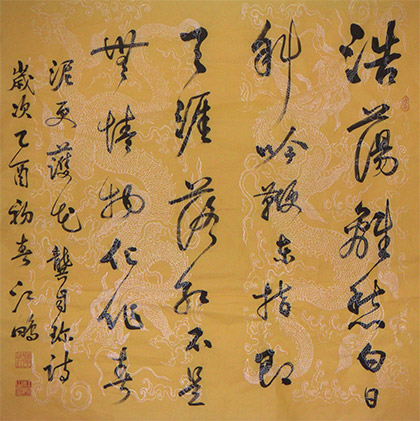 浩蕩離愁白日
斜吟鞭東指即
天涯落紅不是
無情物化作春
泥更護花龔自珍詩
歲次乙酉初春江鵬